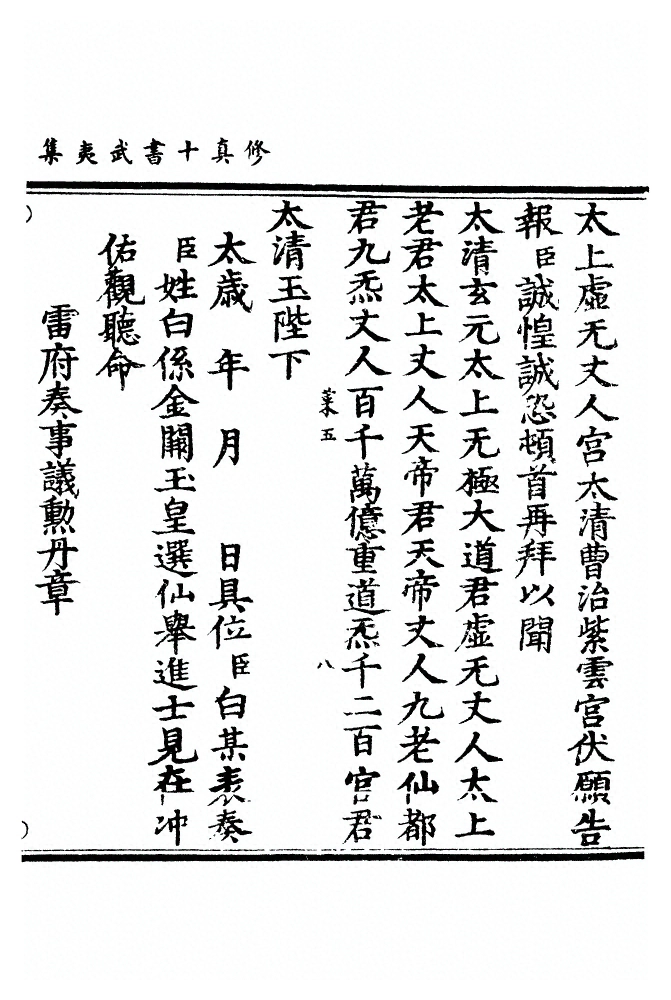 修真十書武夷集
太上虛无丈人宮太清曹治紫雲宮伏願告
報臣誠惶誠恐頓首再拜以聞
太清玄元太上无極大道君虛无丈人太上
老君太上丈人天帝君天帝丈人九老仙都
君九炁丈人百千萬億重道炁千二百官君
菜五 八
太清玉陛下
太歲 年 月 日具位臣白某表奏
臣姓白係金闕玉皇選仙舉進士見在冲
佑觀聽命
雷府奏事議勳丹章